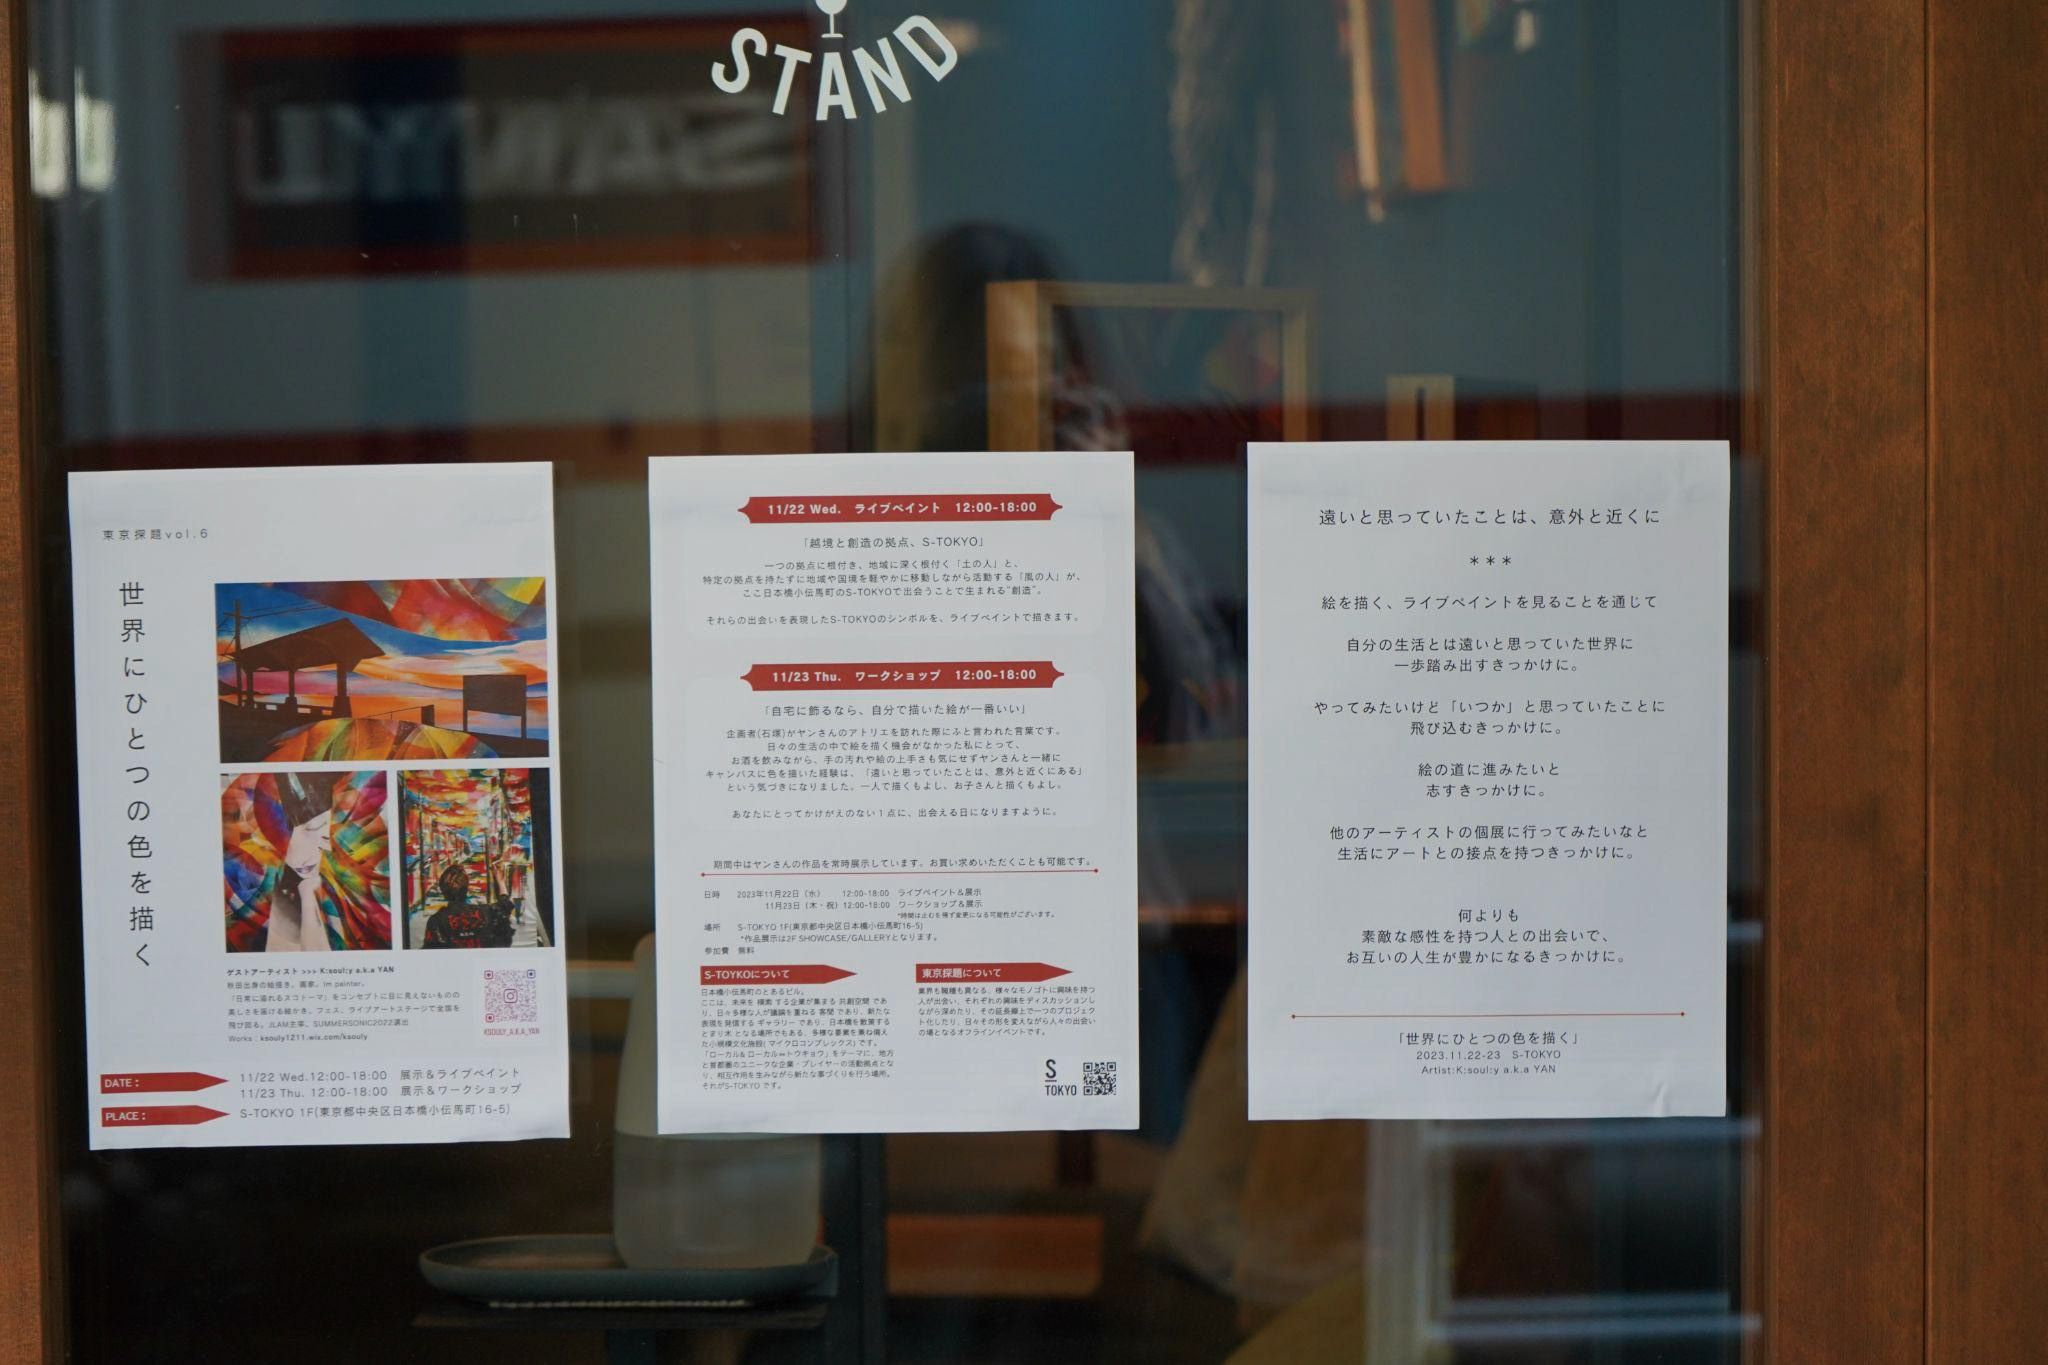 STAND
東京探題vol.6
世界にひとつの色を描く
ゲストアーティスト >>> K:soul:y a.k.a YAN
秋田出身の絵描き。画家。Im painter。
「日常に溢れるスコトーマ」をコンセプトに目に見えないものの
美しさを届ける絵かき。フェス、ライブアートステージで全国を
飛び回る。JLAM主宰。SUMMERSONIC2022選出
Works：ksouly1211.wix.com/ksouly
KSOULY_A.K.A_YAN
DATE：
11/22 Wed.12:00-18:00 展示＆ライブペイント
11/23 Thu. 12:00-18:00 展示＆ワークショップ
PLACE：
S-TOKYO 1F(東京都中央区日本橋小伝馬町16-5)
11/22 Wed. ライブペイント 12:00-18:00
「越境と創造の拠点、S-TOKYO」
一つの拠点に根付き、地域に深く根付く「土の人」と、
特定の拠点を持たずに地域や国境を軽やかに移動しながら活動する「風の人」が、
ここ日本橋小伝馬町のS-TOKYOで出会うことで生まれる“創造”。
それらの出会いを表現したS-TOKYOのシンボルを、ライブペイントで描きます。
11/23 Thu. ワークショップ 12:00-18:00
「自宅に飾るなら、自分で描いた絵が一番いい」
企画者(石塚)がヤンさんのアトリエを訪れた際にふと言われた言葉です。
日々の生活の中で絵を描く機会がなかった私にとって、
お酒を飲みながら、手の汚れや絵の上手さも気にせずヤンさんと一緒に
キャンバスに色を描いた経験は、「遠いと思っていたことは、意外と近くにある」
という気づきになりました。一人で描くもよし、お子さんと描くもよし。
あなたにとってかけがえのない１点に、出会える日になりますように。
期間中はヤンさんの作品を常時展示しています。お買い求めいただくことも可能です。
日時 2023年11月22日（水） 12:00-18:00 ライブペイント＆展示
11月23日（木・祝）12:00-18:00 ワークショップ＆展示
*時間は止むを得ず変更になる可能性がございます。
場所 S-TOKYO 1F(東京都中央区日本橋小伝馬町16-5)
*作品展示は2F SHOWCASE/GALLERYとなります。
参加費 無料
S-TOYKOについて
日本橋小伝馬町のとあるビル。
ここは、未来を 模索 する企業が集まる 共創空間 であ
り、日々多様な人が議論を重ねる 客間 であり、新たな
表現を発信する ギャラリー であり、日本橋を散策する
とまり木 となる場所でもある、多様な要素を兼ね備え
た小規模文化施設( マイクロコンプレックス) です。
「ローカル& ローカル⇔トウキョウ」をテーマに、地方
と首都圏のユニークな企業・プレイヤーの活動拠点とな
り、相互作用を生みながら新たな事づくりを行う場所。
それがS-TOKYO です。
東京探題について
業界も職種も異なる、様々なモノゴトに興味を持つ
人が出会い、それぞれの興味をディスカッションし
ながら深めたり、その延長線上で一つのプロジェク
ト化したり、日々その形を変えながら人々の出会い
の場となるオフラインイベントです。
S
TOKYO
遠いと思っていたことは、意外と近くに
＊＊＊
絵を描く、ライブペイントを見ることを通じて
自分の生活とは遠いと思っていた世界に
一歩踏み出すきっかけに。
やってみたいけど「いつか」と思っていたことに
飛び込むきっかけに。
絵の道に進みたいと
志すきっかけに。
他のアーティストの個展に行ってみたいなと
生活にアートとの接点を持つきっかけに。
何よりも
素敵な感性を持つ人との出会いで、
お互いの人生が豊かになるきっかけに。
「世界にひとつの色を描く」
2023.11.22-23 S-TOKYO
Artist:K:soul:y a.k.a YAN